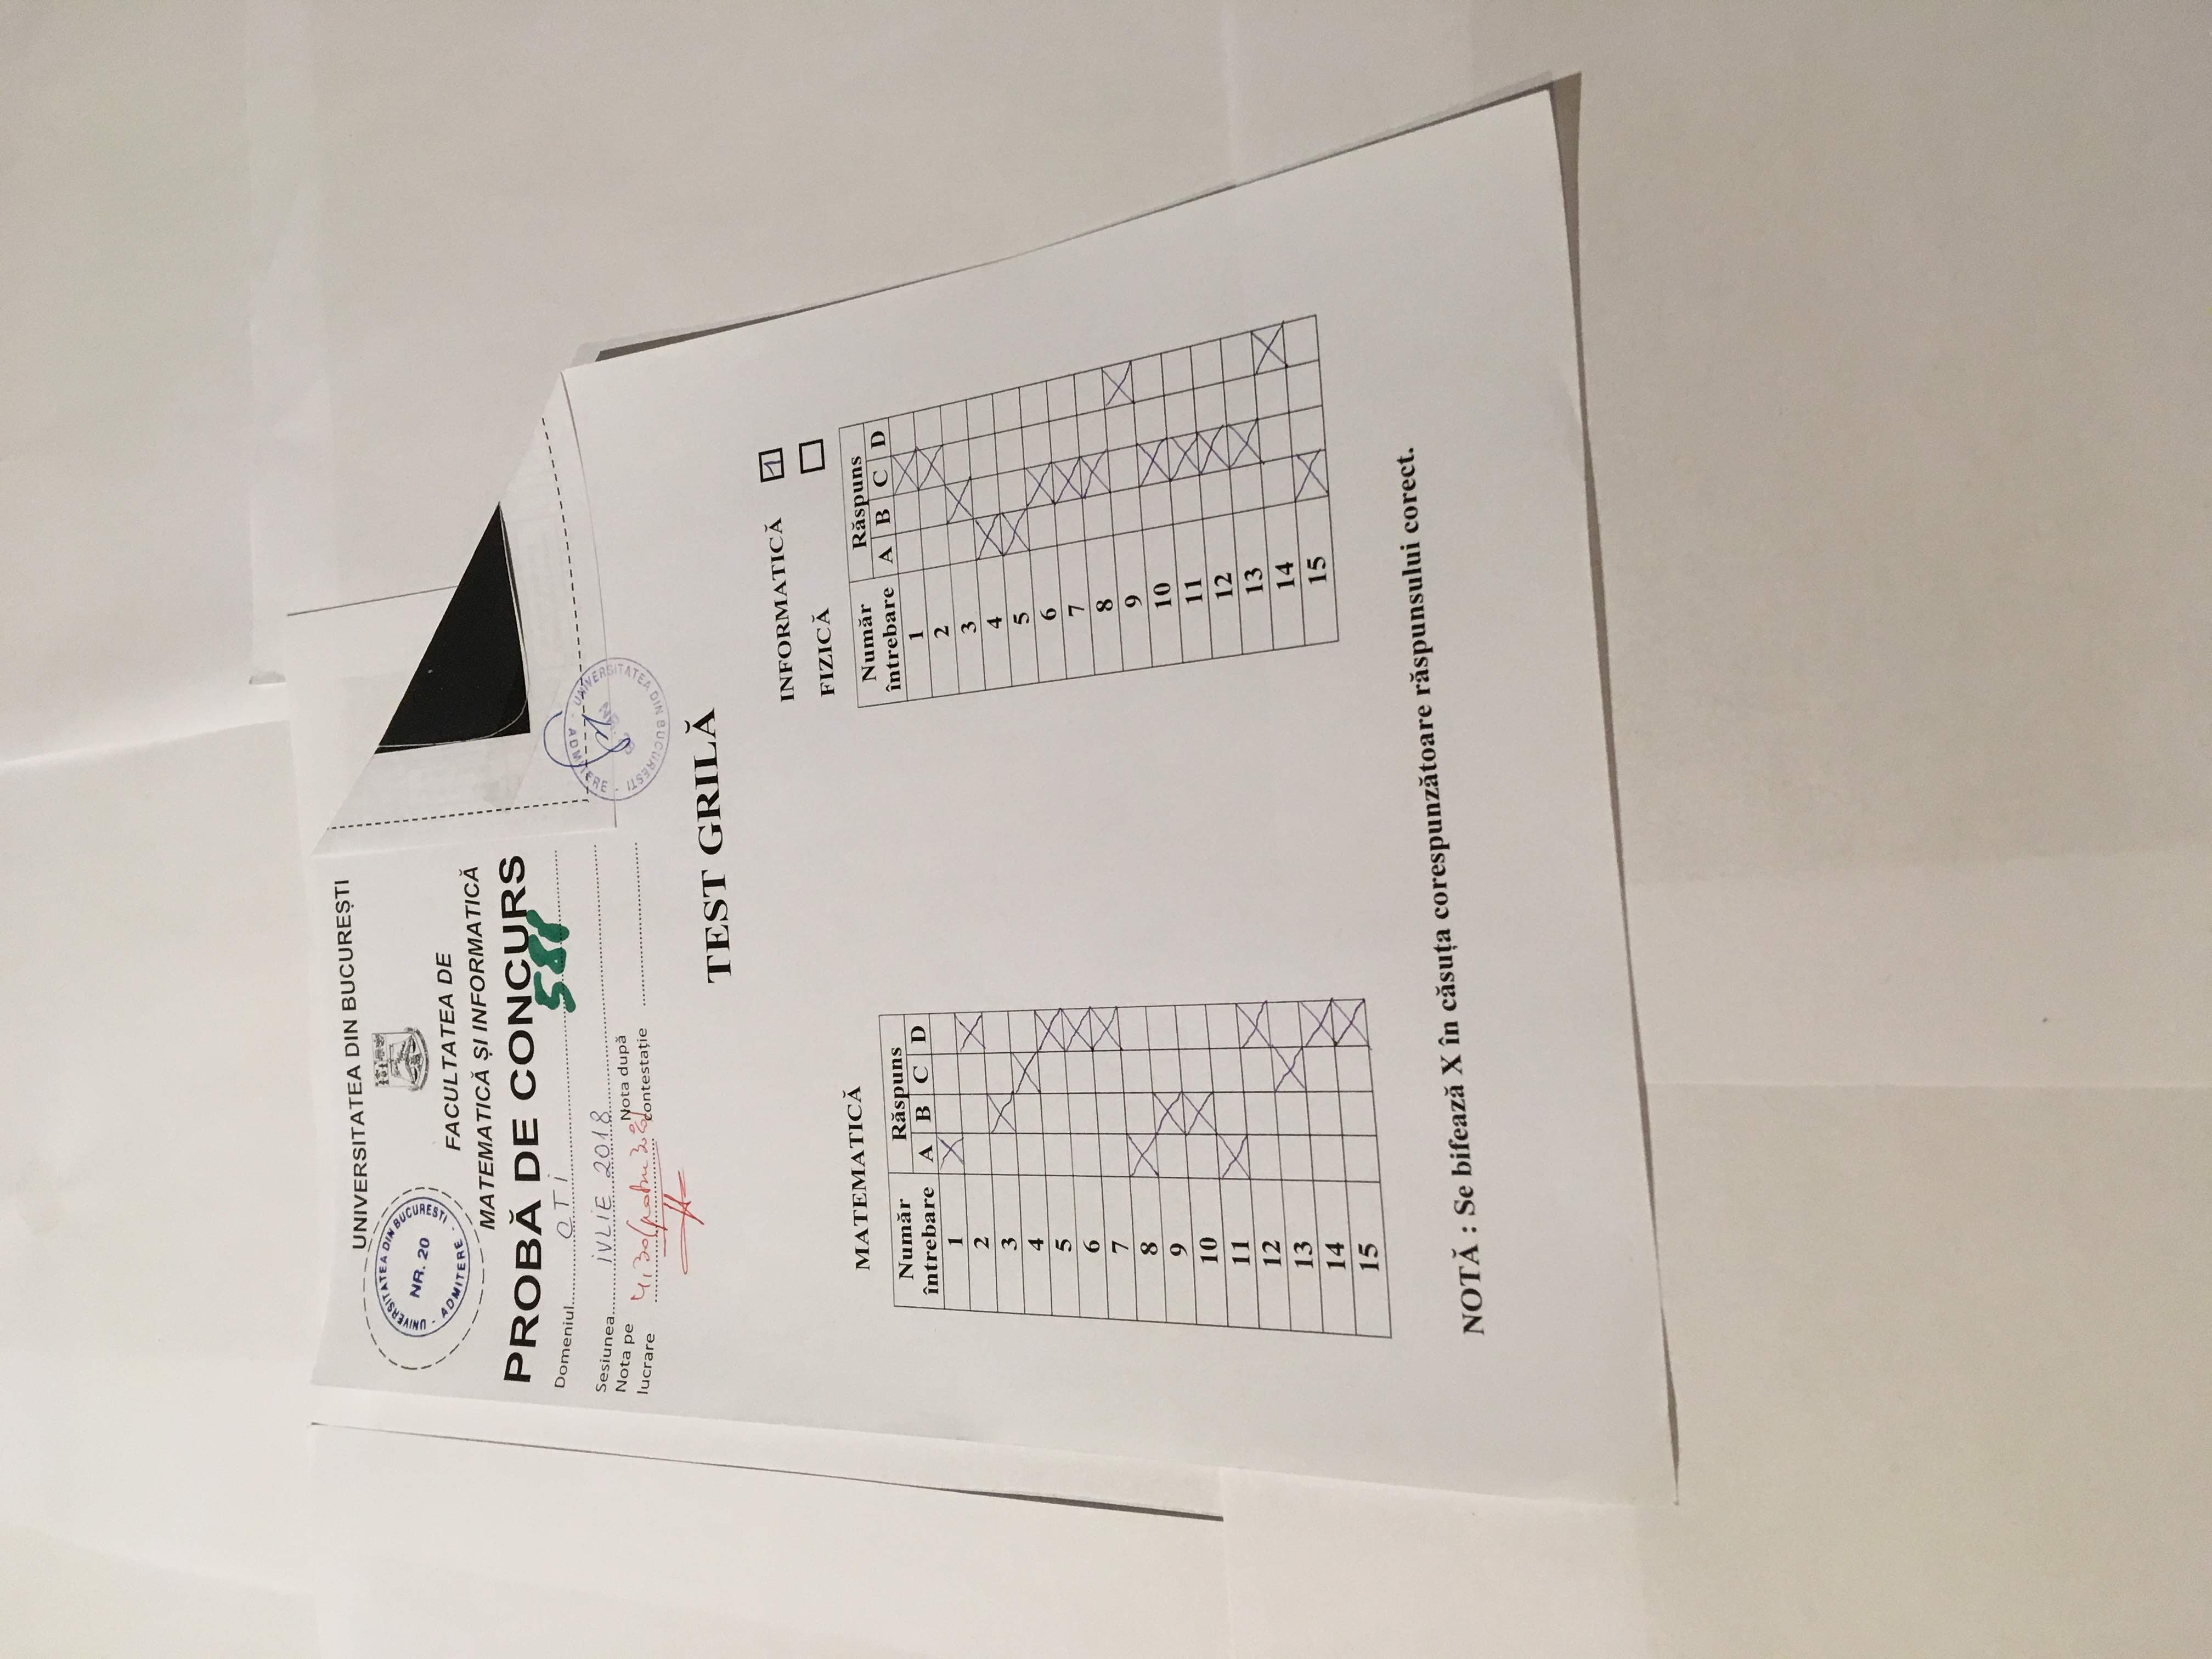 UNIVERSITATEA DIN BUCUREȘTI
UNIVERSITATEA DIN BUCUREȘTI
NR. 20
ADMITERE
FACULTATEA DE
MATEMATICĂ ȘI INFORMATICĂ
PROBĂ DE CONCURS
588
Domeniul CTI
Sesiunea IULIE 2018
Nota pe lucrare 4,30 (patru 30%)
Nota după contestație
UNIVERSITATEA DIN BUCUREȘTI
ADMITERE
TEST GRILĂ
INFORMATICĂ 1
FIZICĂ
MATEMATICĂ
Număr întrebare Răspuns
A B C D
1 X
2 X
3 X
4 X
5 X
6 X
7 X
8 X
9 X
10 X
11 X
12 X
13 X
14 X
15 X
Număr întrebare Răspuns
A B C D
1 X
2 X
3 X
4 X
5 X
6 X
7 X
8 X
9 X
10 X
11 X
12 X
13 X
14 X
15 X
NOTĂ : Se bifează X în căsuța corespunzătoare răspunsului corect.